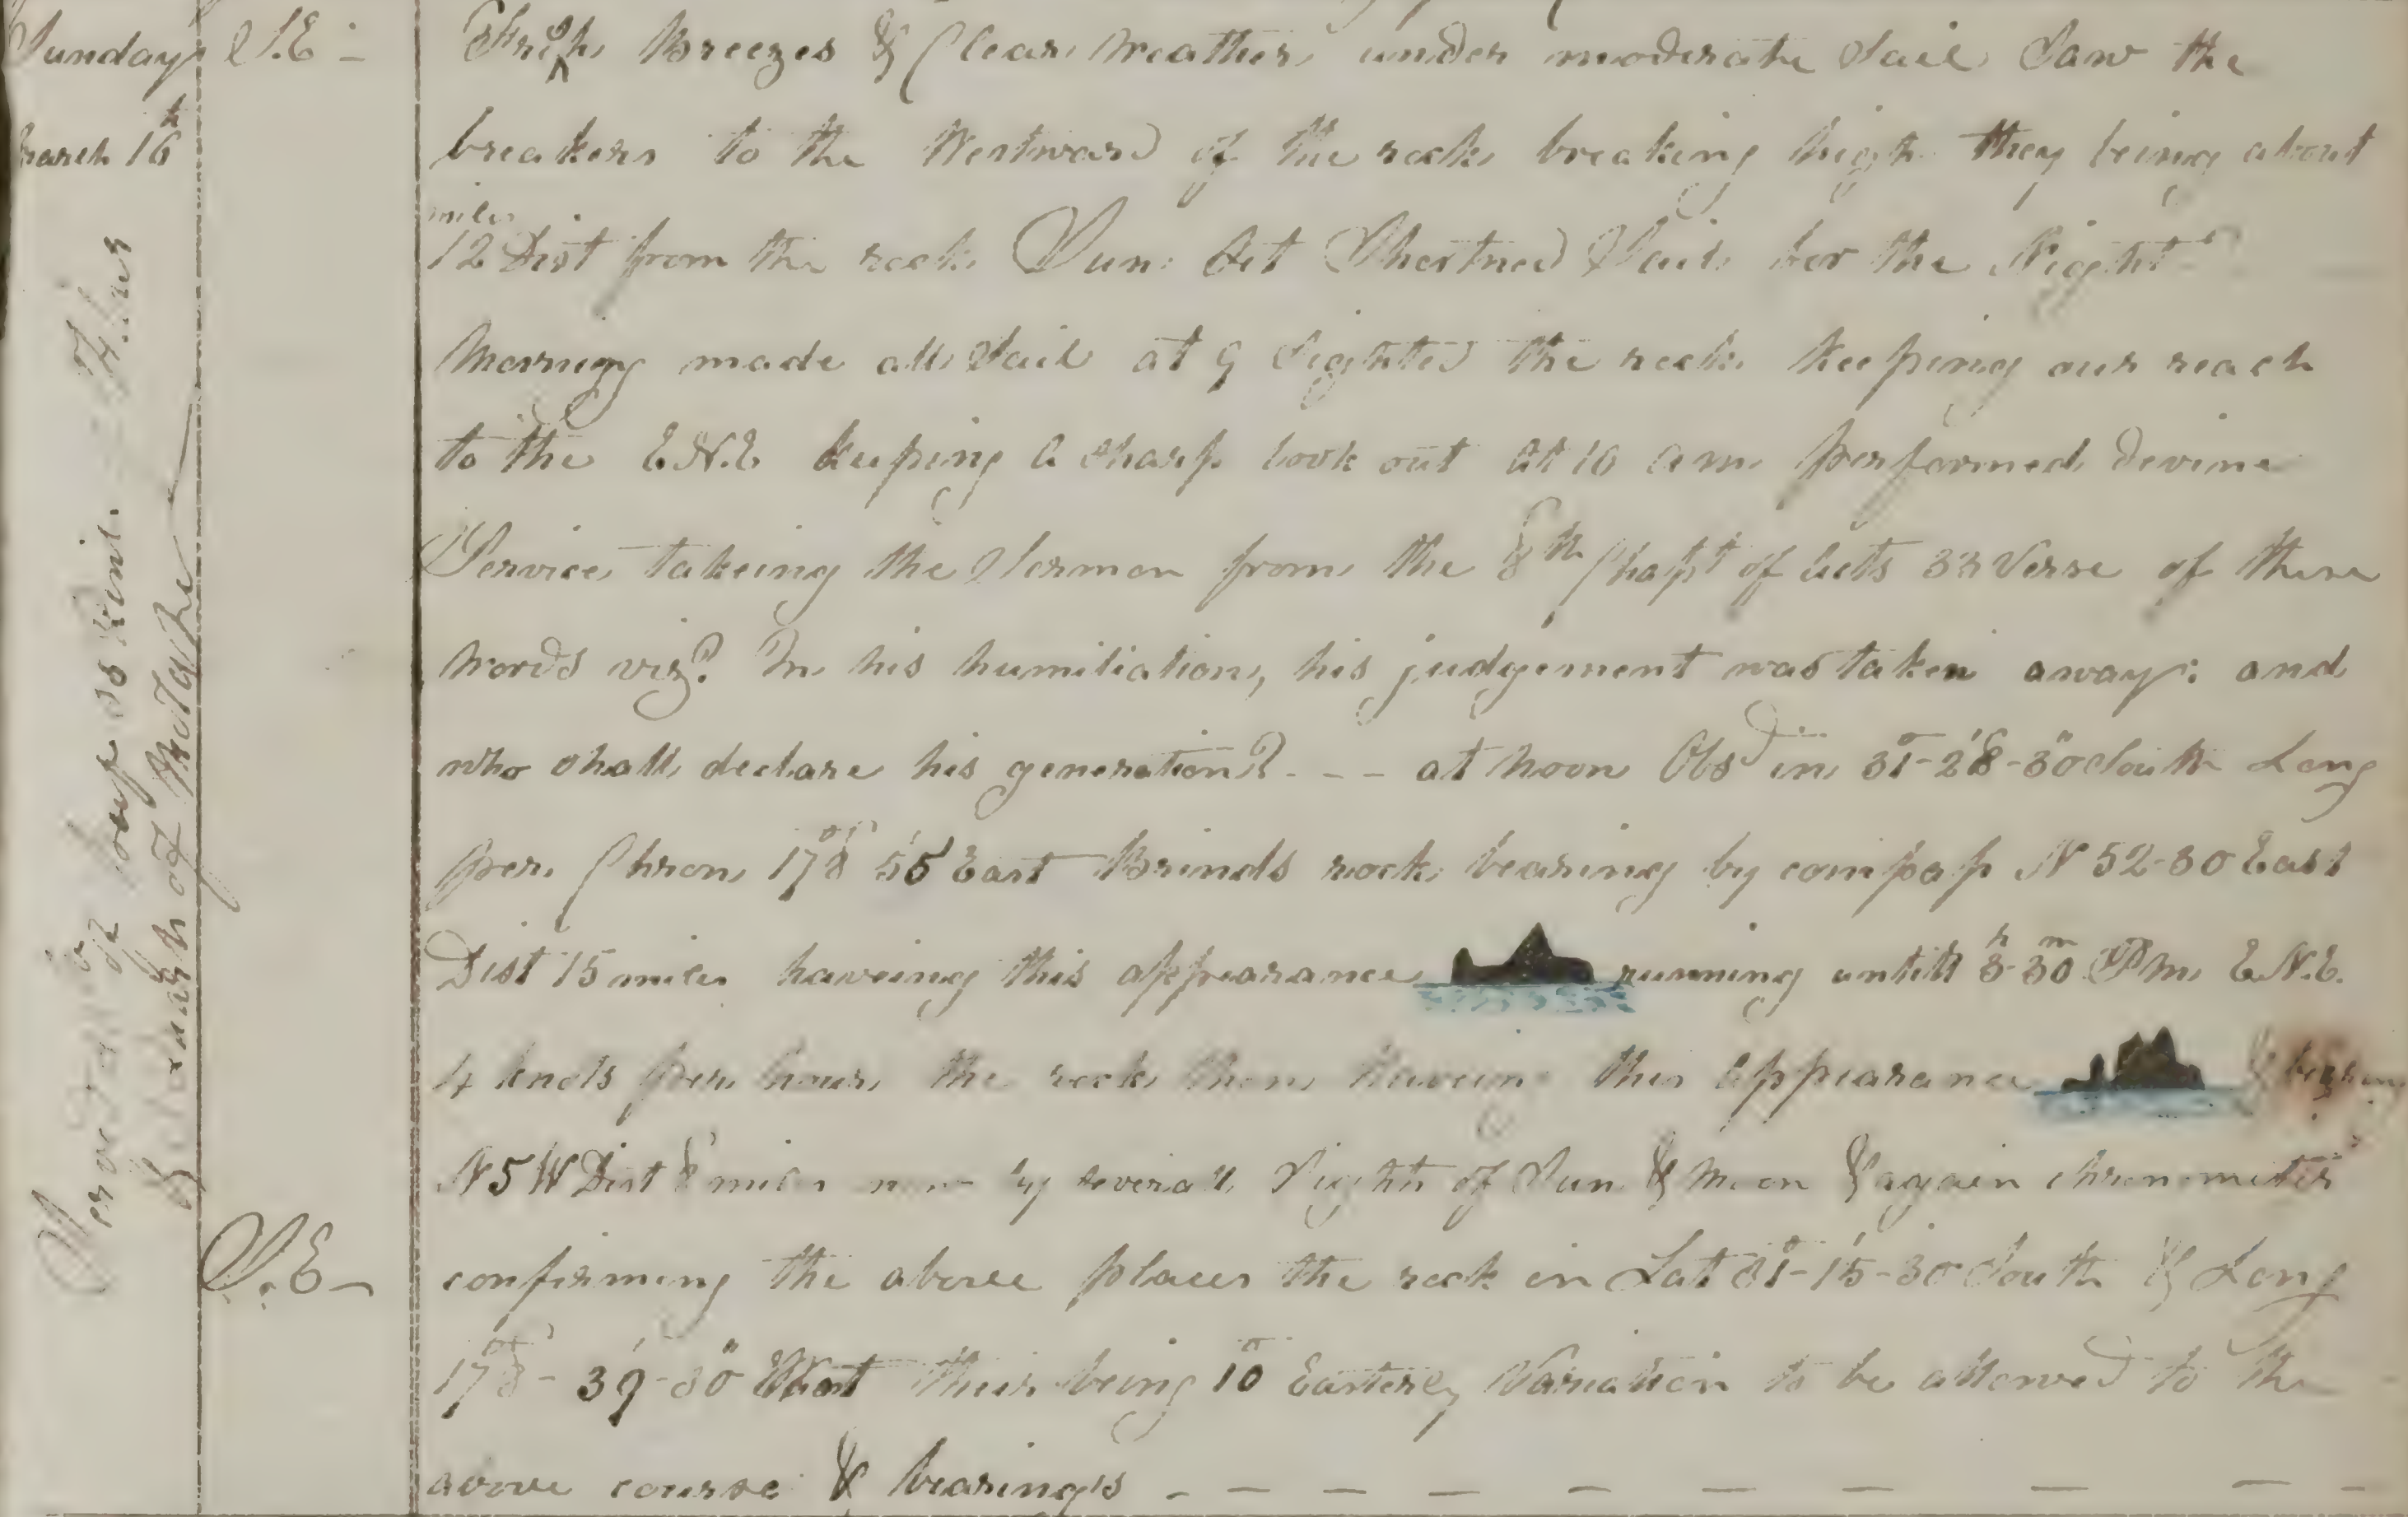 Sunday S.E - Fresh Breezes & Clear Weather under moderate Sail Saw the
March 16th breakers to the Westward of the rock breaking high they being about
miles
12 Dist from the rock Sun Set Shortned Sail for the Night
Morning made all Sail at 9 Sighted the rock keeping our reach
to the E.N.E keeping a sharp look out at 10 am performed devine
Service takeing the Sermon from the 8th Chapt of Acts 33 Verse of these
words viz? In his humiliation, his judgement was taken away: and
who shall declare his generation? - - - at Noon Obsd in 31°-28'-30" South Long
per Chron 178° 55' East Brinds rock bearing by compass N 52-30 East
Dist 15 miles haveing this appearance running untill 3h-30m Pm E.N.E.
4 knots per hour the rock then haveing this appearance & bearing
N 5 W Dist 8 miles by severall Sights of Sun & Moon & again chronometer
S.E - confirming the above places the rock in Lat 31°-15'-30 South & Long
178°-39'-30" West their being 10° Easterly Variation to be allowed to the
above course & bearings - - - - - - - - -
of